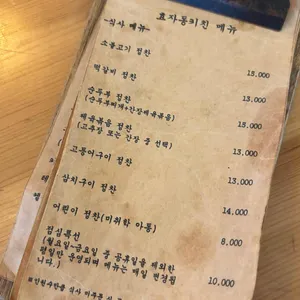 효자동키친 메뉴
-식사 메뉴-
소불고기 정찬 15.000
떡갈비 정찬 13.000
순두부 정찬
(순두부찌개+간장제육볶음) 15.000
제육볶음 정찬
(고추장 또는 간장 중 선택) 13.000
고등어구이 정찬 13.000
삼치구이 정찬 14.000
어린이 정찬(미취학 아동) 8.000
점심특선
(월요일~금요일 중 공휴일을 제외한
평일만 운영되며 메뉴는 매일 변경됩
니다.) 10.000